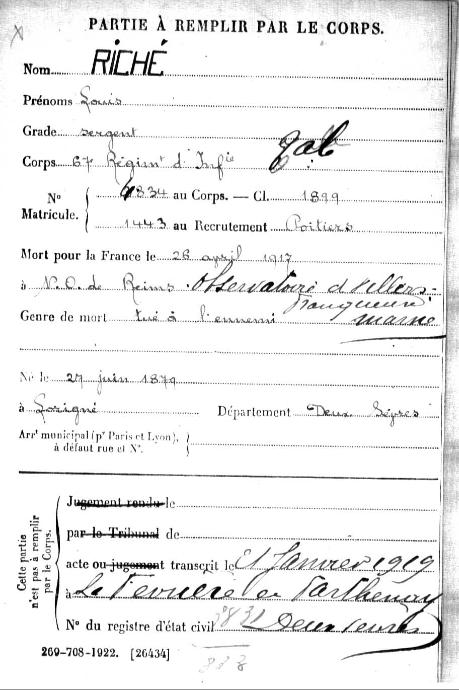 PARTIE À REMPLIR PAR LE CORPS.
Nom RICHÉ
Prénoms Louis
Grade sergent
Corps 67 Régimt d' Infie
Nº Matricule. 6834 au Corps. — Cl. 1899
1443 au Recrutement Poitiers
Mort pour la France le 26 avril 1917
à N. O. de Reims. Observatoire d Villers-
Franqueux
Genre de mort tué à l'ennemi marne
Né le 27 juin 1879
à Lorigné Département Deux Sèvres
Arrt municipal (pr Paris et Lyon),
à défaut rue et Nº.
Cette partie n'est pas à remplir par le Corps.
Jugement rendu le
par le Tribunal de
acte ou jugement transcrit le 21 Janvier 1919
à La Ferrière en Parthenay
Nº du registre d'état civil Deux Sevres
269-708-1922. [26434]